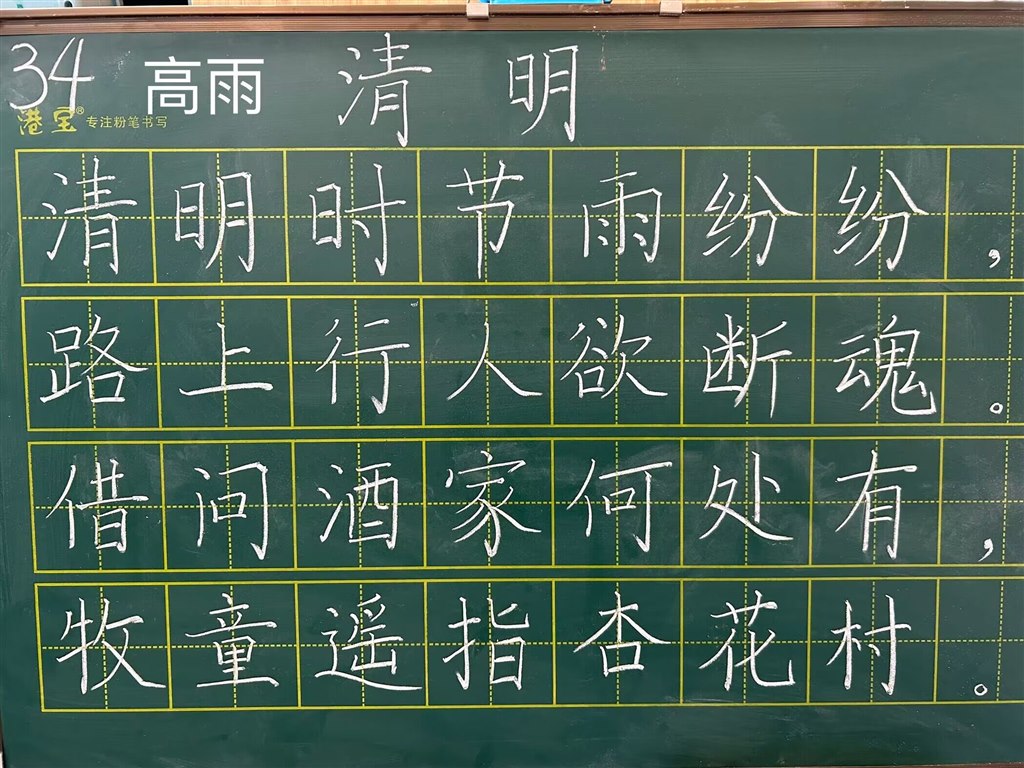 34 高雨 清明
港宝® 专注粉笔书写
清明时节雨纷纷,
路上行人欲断魂。
借问酒家何处有,
牧童遥指杏花村。